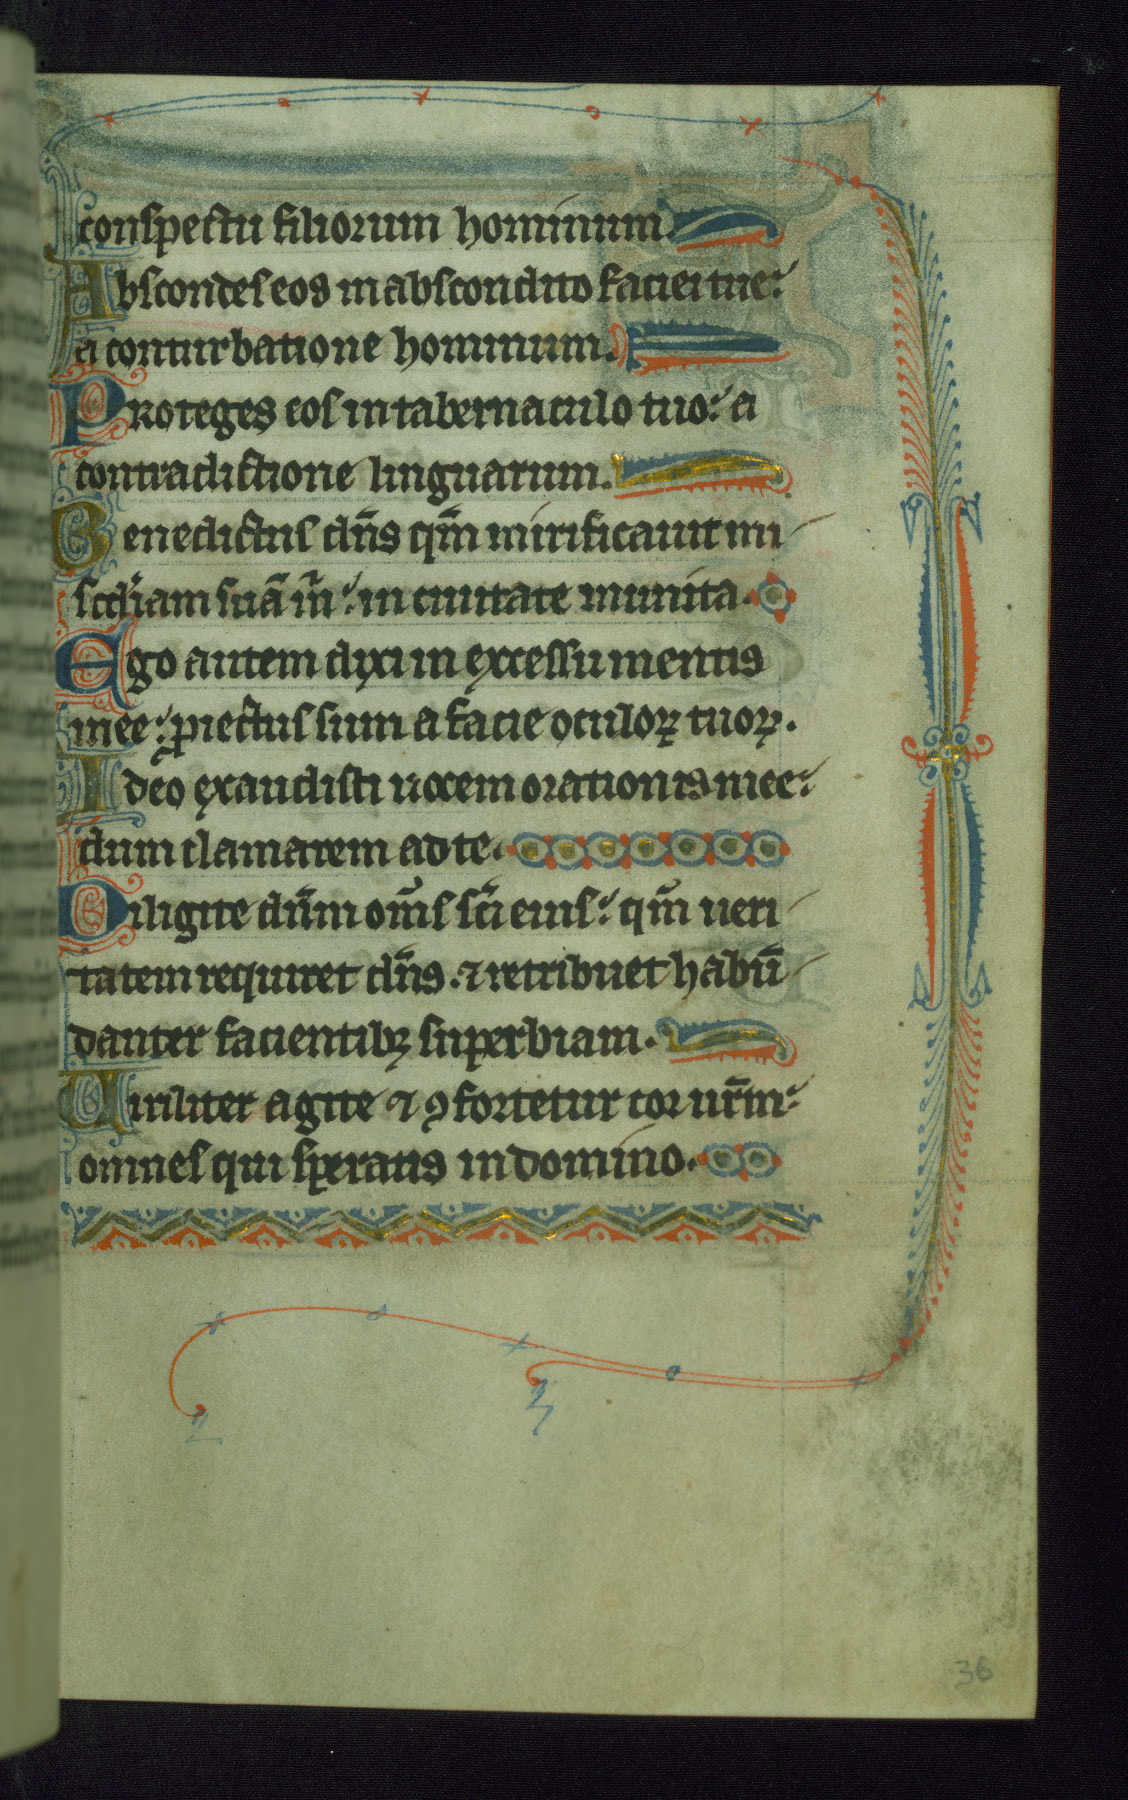 conspectu filiorum hominum.
Abscondes eos in abscondito faciei tue:
a conturbatione hominum.
Proteges eos in tabernaculo tuo: a
contradictione linguarum.
Benedictus dñs qm̃ mirificauit mi
sc̃diam suã m̃: in ciuitate munita.
Ego autem dixi in excessu mentis
mee: ꝓiectus sum a facie oculoꝝ tuoꝝ.
Ideo exaudisti uocem orationis mee:
dum clamarem ad te.
Diligite dñm om̃s sc̃i eius: qm̃ ueri
tatem requiret dñs. ⁊ retribuet habũ
danter facientibꝫ superbiam.
Uiriliter agite ⁊ ꝯfortetur cor ur̃m:
omnes qui speratis in domino.
36